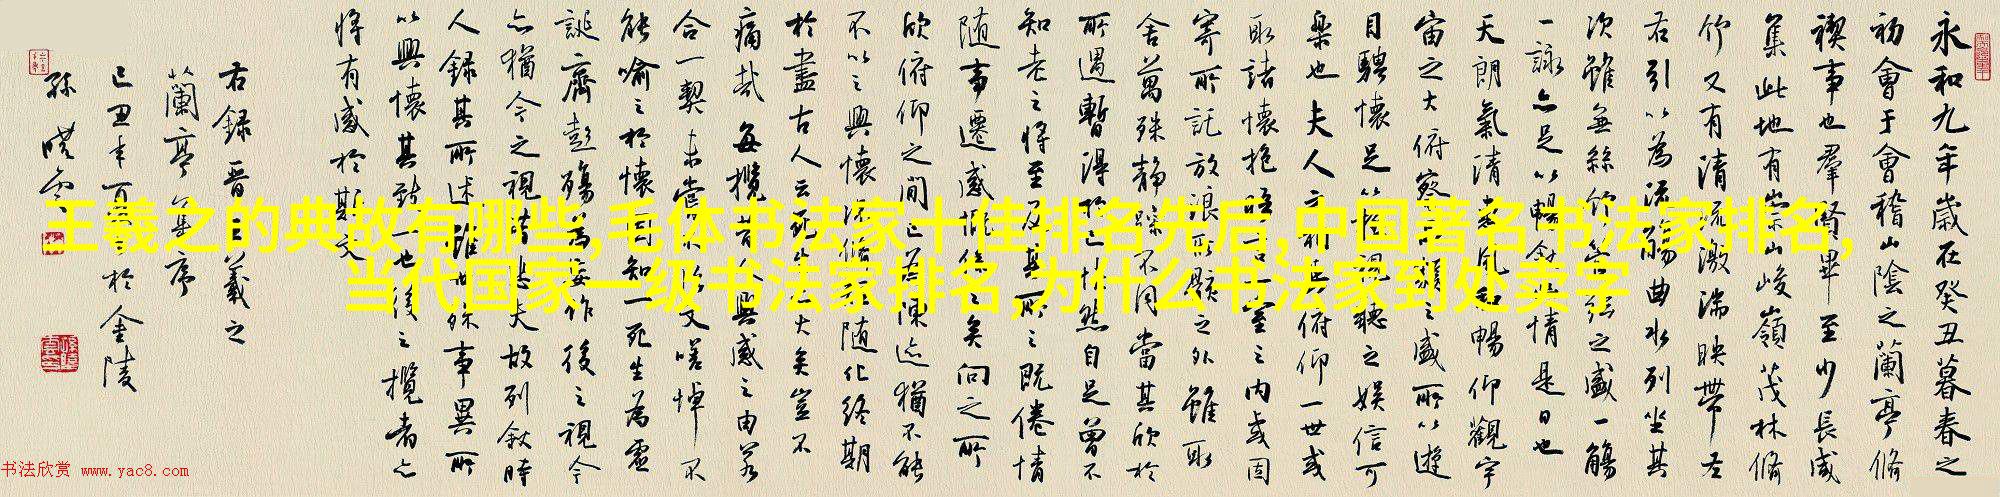 永和九年歲在癸丑暮春之
初會于會稽山陰之蘭亭脩
禊事也羣賢畢至少長咸
集此地有崇山峻嶺茂林脩
竹又有清流激湍映帶左
右引以為流觴曲水列坐其
次雖無絲竹管弦之盛一觴
一詠亦足以暢敘幽情是日也
天朗氣清惠風和暢仰觀宇
宙之大俯察品類之盛所以遊
目騁懷足以極視聽之娛信可
樂也夫人之相與俯仰一世或
取諸懷抱晤言一室之內或因
寄所託放浪形骸之外雖取
舍萬殊靜躁不同當其欣於
所遇暫得於己快然自足曾不
知老之將至及其所之既倦情
隨事遷感慨係之矣向之所
欣俯仰之間已為陳迹猶不能
不以之興懷況脩短隨化終期
於盡古人云死生亦大矣豈不
痛哉每攬昔人興感之由若
合一契未嘗不臨文嗟悼不
能喻之於懷固知一死生為虛
誕齊彭殤為妄作後之視今
亦猶今之視昔悲夫故列敘時
人錄其所述雖世殊事異所
以興懷其致一也後之攬者亦
將有感於斯文
右錄晉王羲之
蘭亭集序
己丑年於金陵
孫曉雲
王羲之的典故有哪些,毛体书法家十佳排名先后,中国著名书法家排名,
当代国家一级书法家排名,为什么书法家到处卖字
书法欣赏 www.yac8.com